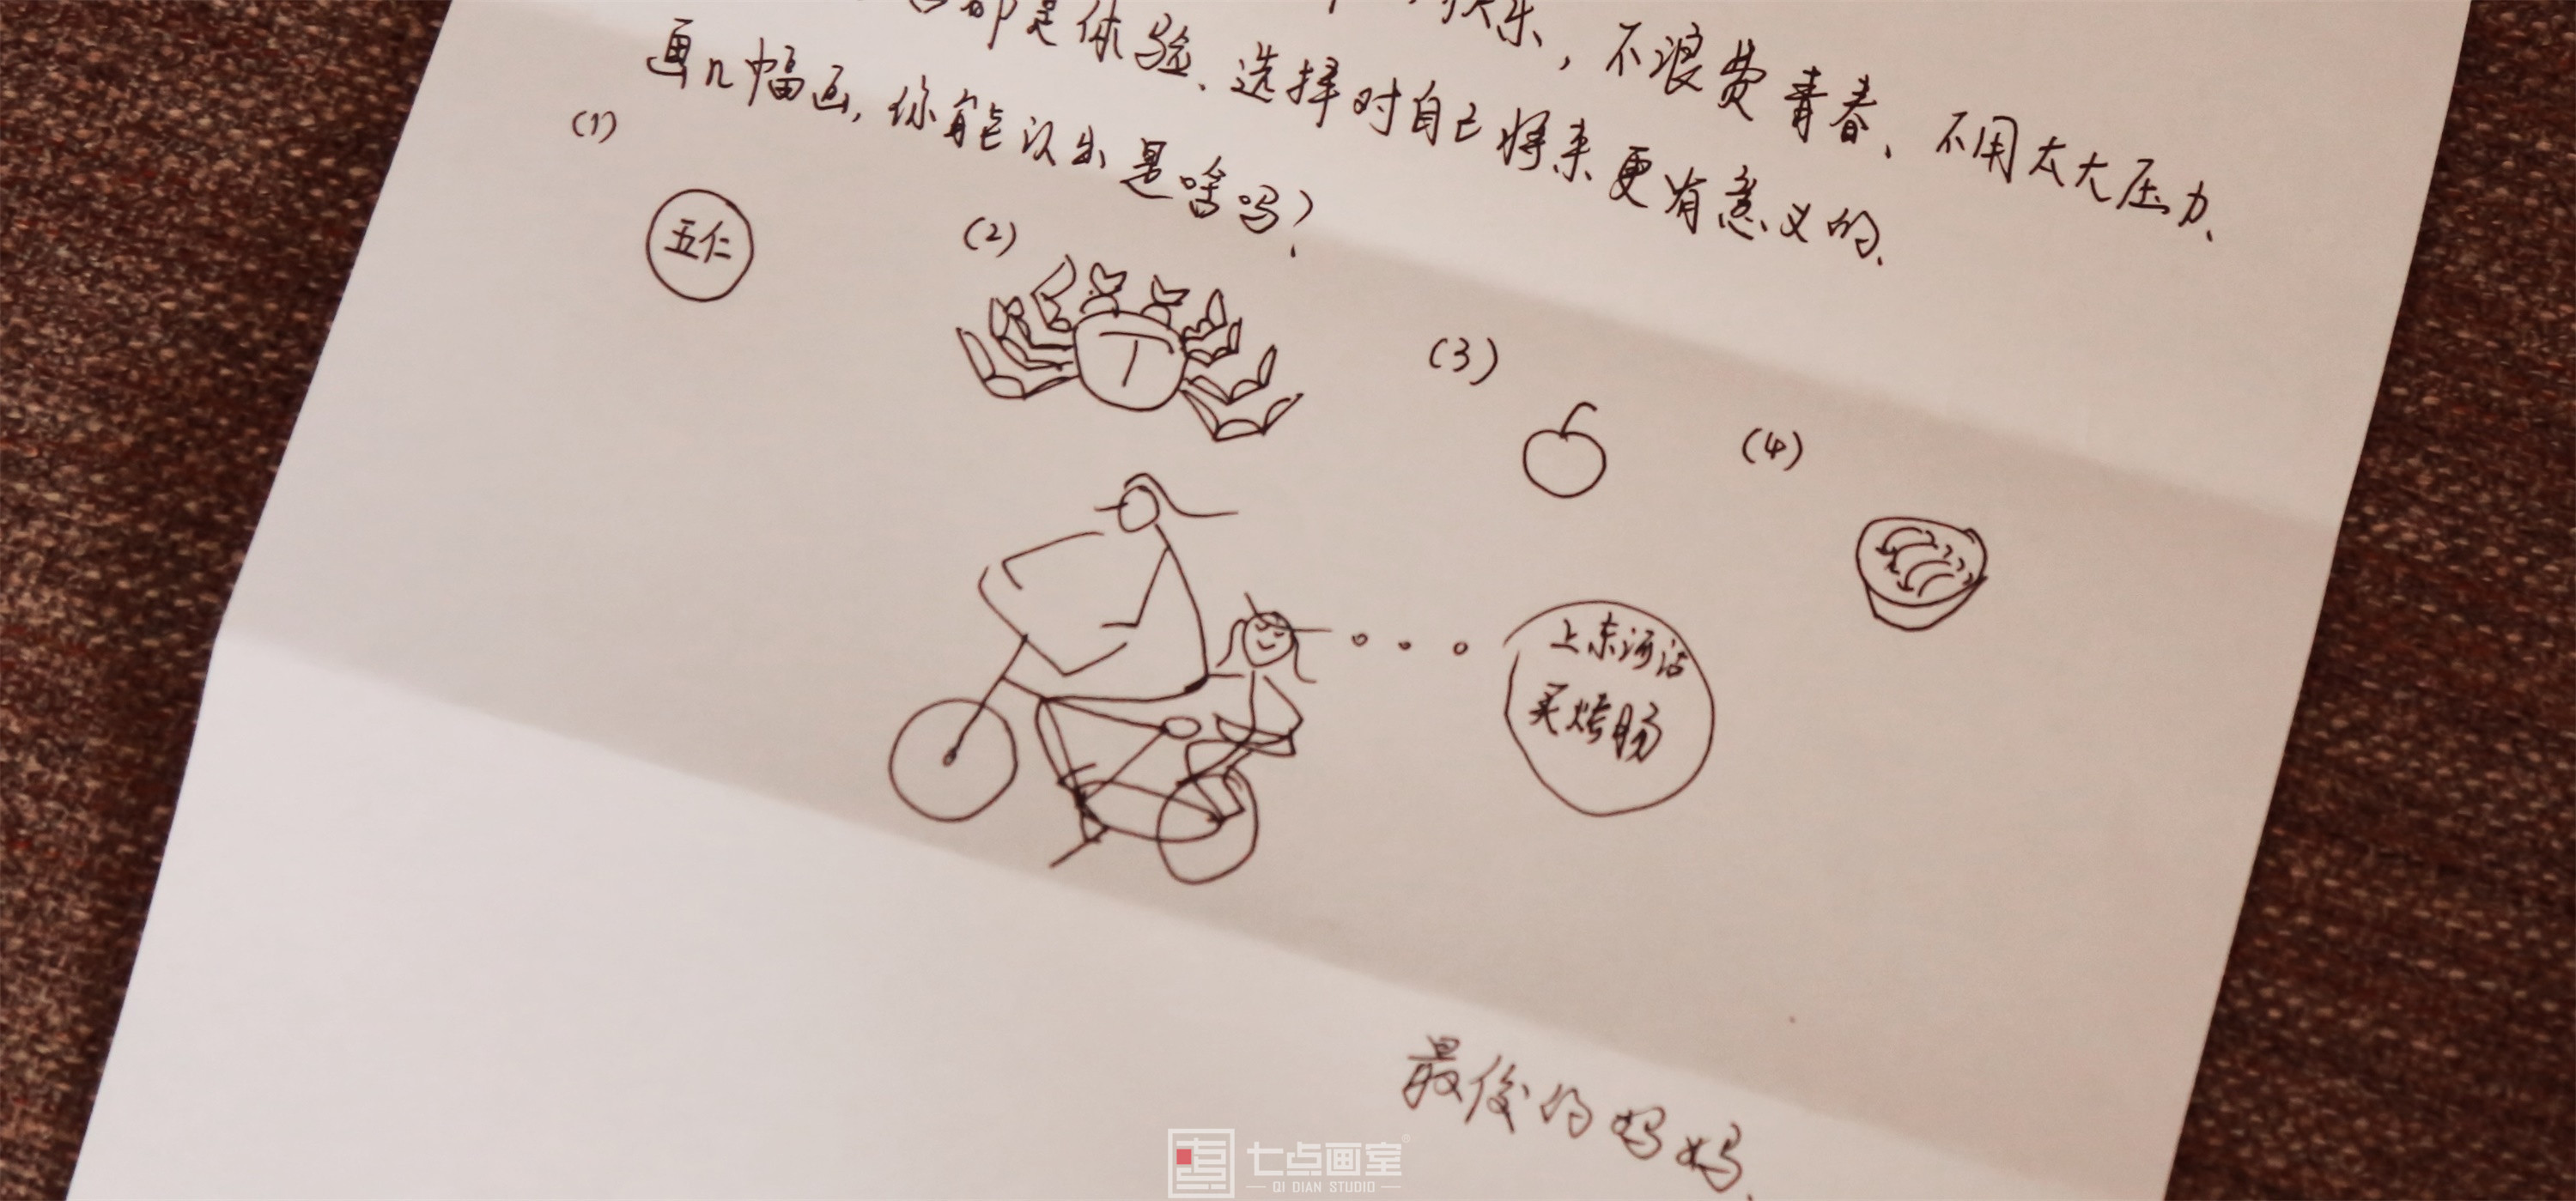 快乐，不浪费青春、不用太大压力、
都是体验、选择对自己将来更有意义的、
画几幅画，你能认出是啥吗？
(1)
五仁
(2)
丁
(3)
(4)
上东河沿
买烤肠
最俊的妈妈、
七点画室
QI DIAN STUDIO